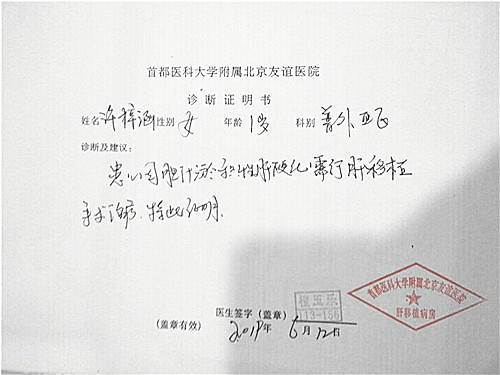 首都医科大学附属北京友谊医院
诊断证明书
姓名 许梓涵 性别 女 年龄 1岁 科别 普外
诊断及建议:
患儿因胆汁淤积性肝硬化,需行肝移植
手术治疗.特此证明.
医生签字(盖章)
113-156
(盖章有效) 年 6月12日
首都医科大学附属北京友谊医院
肝移植病房